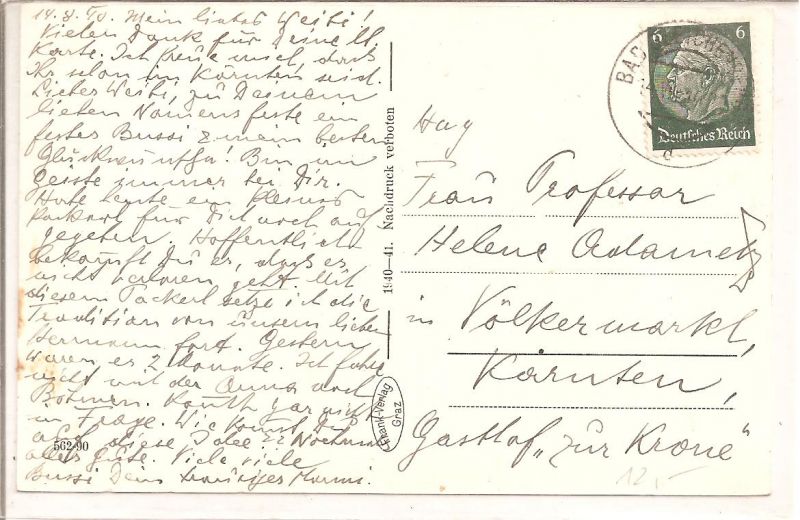 14.8.40. Mein liebes Weibi!
Vielen Dank für Deine ll.
Karte. Ich freue mich, dass
Ihr schon in Kärnten seid.
Liebes Weibi, zu Deinem
lieben Namensfeste ein
festes Bussi z. mein besten
Glückwunsch! Bin im
Geiste immer bei Dir.
Habe heute ein kleines
Packerl für Dich noch auf
gegeben. Hoffentlich
bekommst Du es, dass es
nicht verloren geht. Mit
diesem Packerl setze ich die
Tradition von unserm lieben
Hermann fort. Gestern
waren es 2 Monate. Ich fahre
nicht mit der Anna nach
Böhmen. Kommt gar nicht
in Frage. Wie kommt Du
auf diese Idee Nochmal
alles Gute. Viele viele
Bussi Dein trauriges Mammi.
562-90
1940-41. Nachdruck verboten
Frank-Verlag
Graz
6 6
Deutsches Reich
BAD
d
Hag
Frau Professor
Helene Adametz
in Völkermarkt,
Kärnten,
Gasthof „zur Krone"
12,-